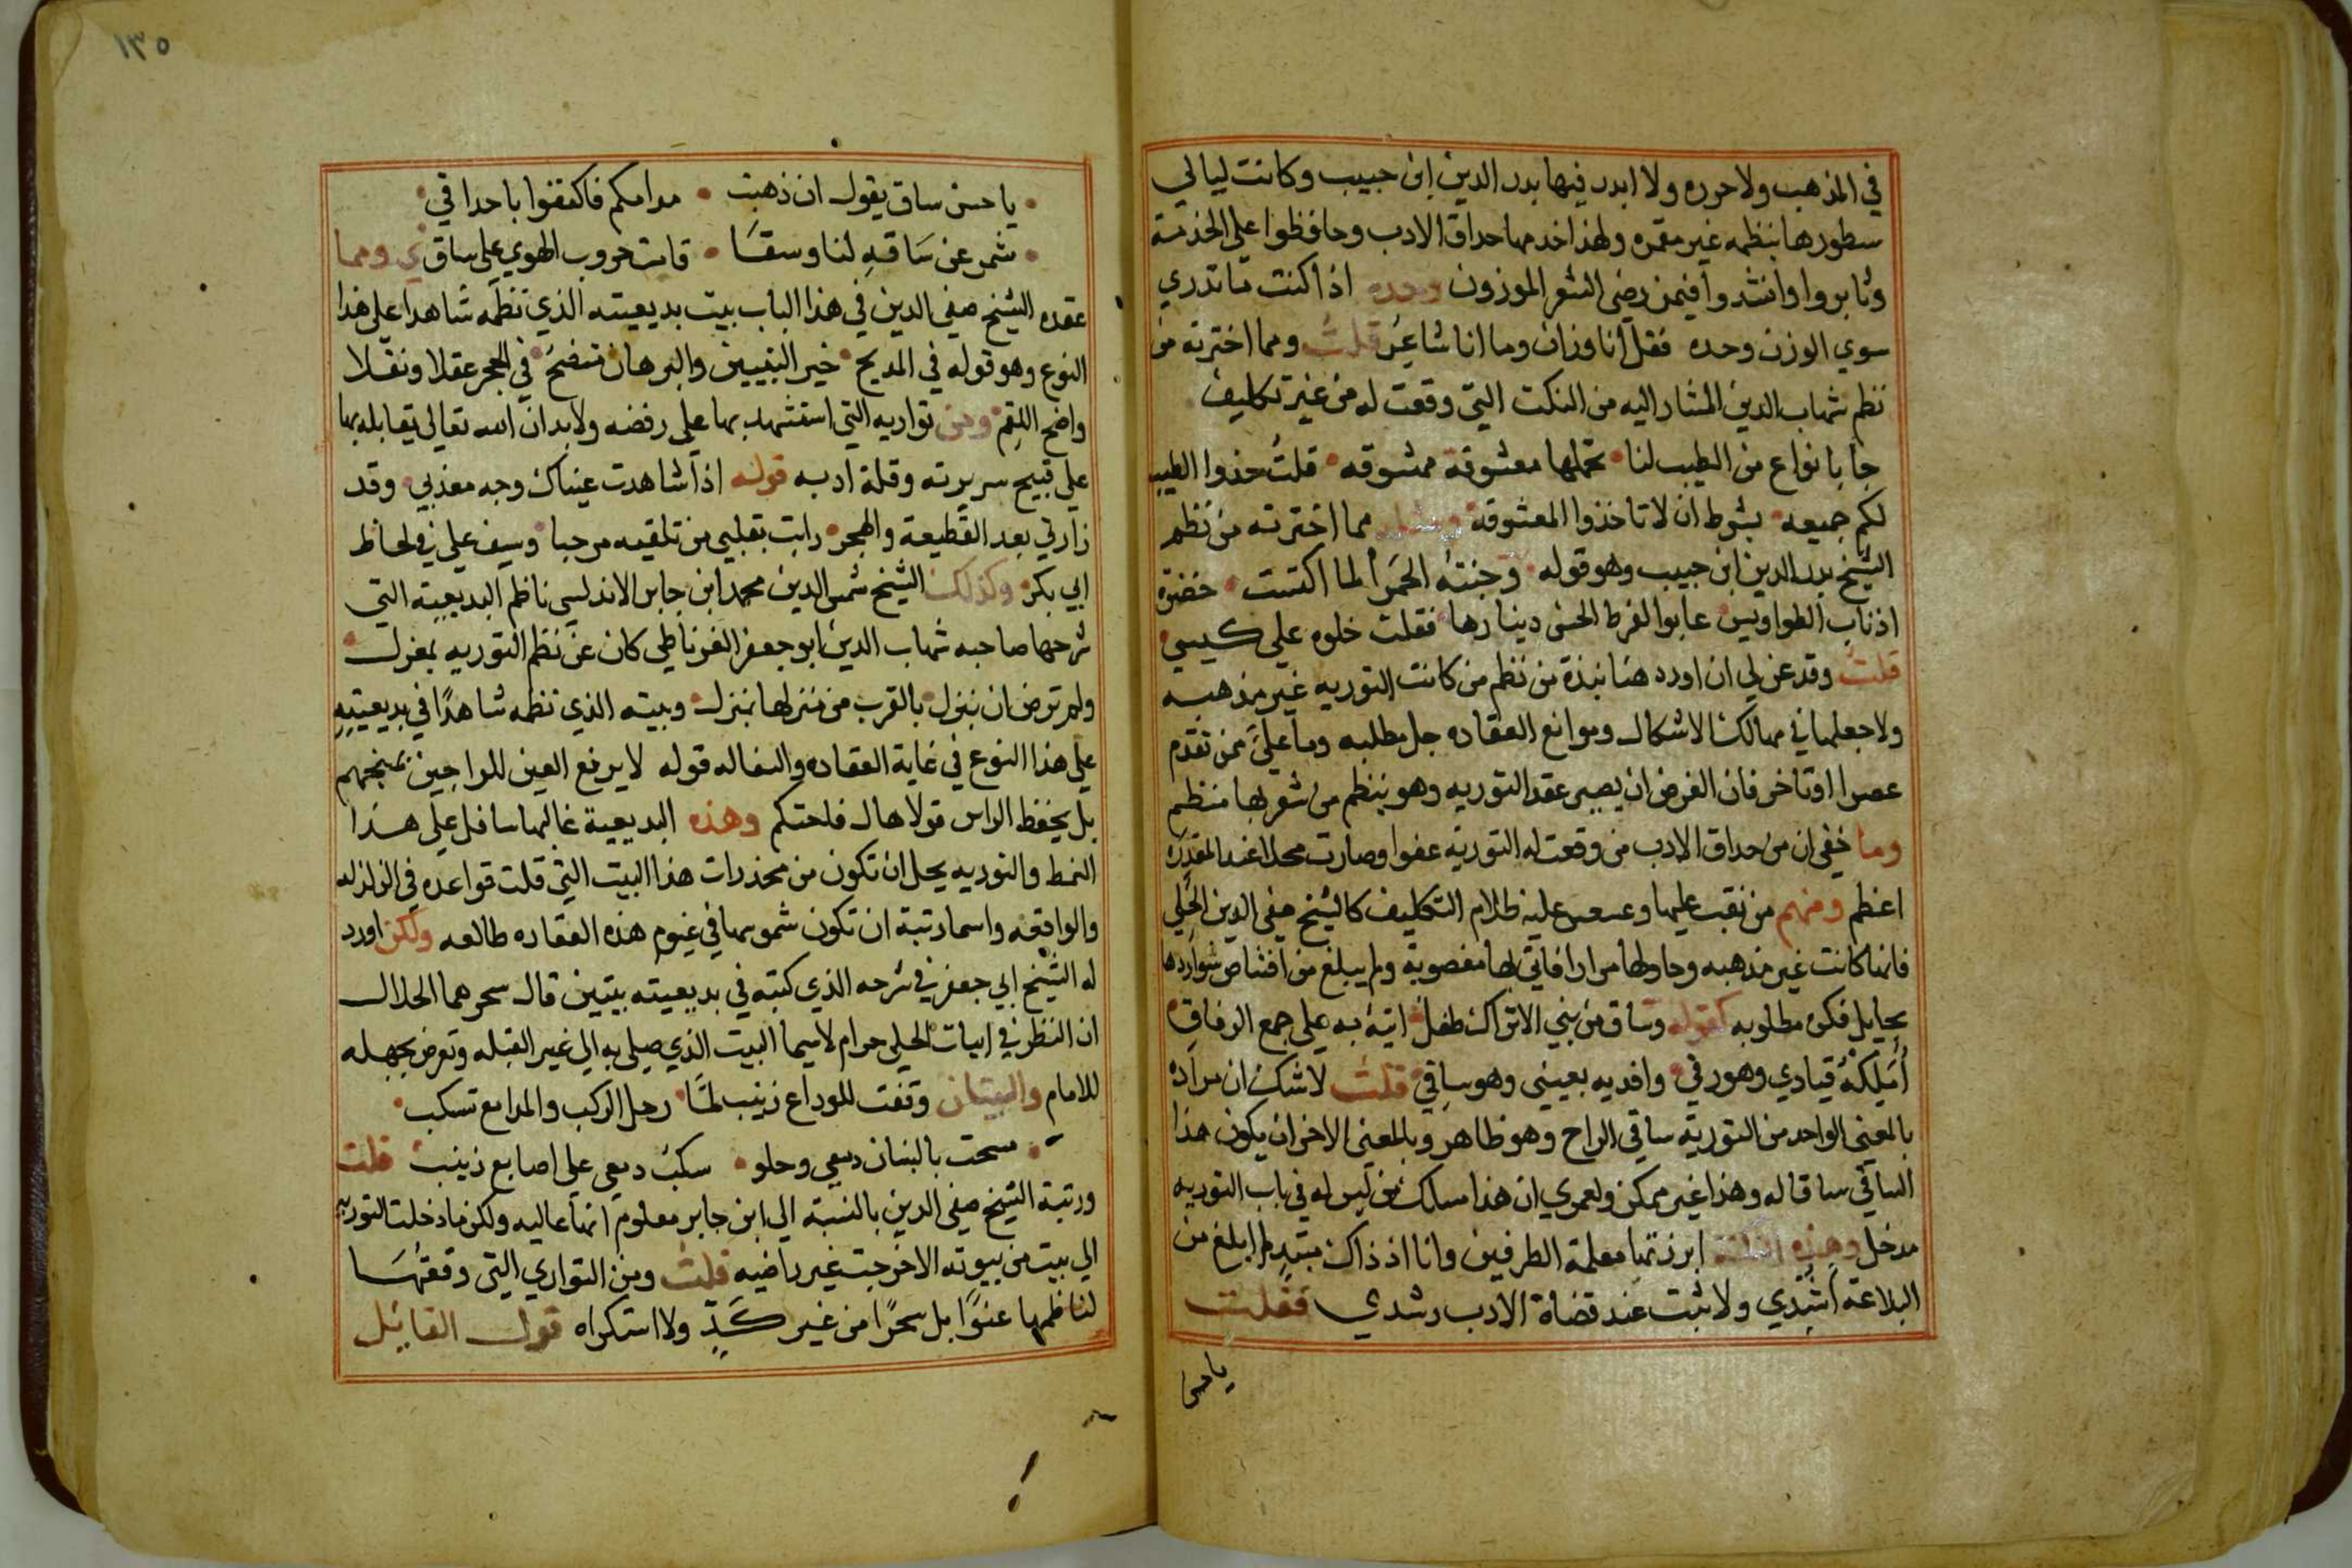 في المذهب ولا حرره ولا ابدر فيها بدر الدين ابن حبيب وكانت ليالي
سطورها بنظمه غير مقمره ولهذا خدمها حداق الادب وحافظوا علي الخدمة
وثابروا وانشدوا فيمن رضي الشعر الموزون وحده اذا كنت ما تدري
سوي الوزن وحده فقل انا وزان وما انا شاعر قلت ومما اخترته من
نظم شهاب الدين المشار اليه من النكت التي وقعت له من غير تكليف
جا بانواع من الطيب لنا تحملها معشوقة ممشوقه قلت خذوا الطيب
لكم جميعه بشرط ان لا تاخذوا المعشوقة ومثله مما اخترته من نظم
الشيخ بدر الدين ابن حبيب وهو قوله وجنته الحمرا لما اكتست خضرة
اذناب الطواويس عابوا لفرط الحسن دينارها فقلت خلوه علي كيسي
قلت وقد عن لي ان اورد هنا نبذة من نظم من كانت التوريه غير مذهبه
ولا جعلها في ممالك الاشكال وموانع العقاده جل مطلبه وما علي ممن تقدم
عصرا او تاخر فان الغرض ان يصير عقد التوريه وهو بنظم من شعر بها منظم
وما خفي ان من حداق الادب من وقعت له التوريه عفوا وصارت محلا عند المقدره
اعظم ومنهم من نقب عليها وعسعس عليه ظلام التكليف كالشيخ صفي الدين الحلي
فانها كانت غير مذهبه وحاولها مرارا فاتي بها مغصوبة ولم يبلغ من اقتناص شواردها
بحبايل فكره مطلوبه كقوله وساق من بني الاتراك طفل اتيه به علي جمع الرفاق
املكه قيادي وهو رقي وافديه بعيني وهو ساقي قلت لا شك ان مراده
بالمعني الواحد من التورية ساقي الراح وهو ظاهر وبالمعني الاخر ان يكون هذا
الساقي ساقا له وهذا غير ممكن ولعمري ان هذا مسلك من ليس له في باب التوريه
مدخل وهذه النكتة ابرزتها معلمة الطرفين وانا اذ ذاك مبتد لم ابلغ من
البلاغة اشدي ولا ثبت عند قضاة الادب رشدي فقلت
ياحسن
١٣٥
ياحسن ساق يقول ان ذهبت مدامكم فاكتفوا باحداقي
شمر عن ساقه لنا وسقا قامت حروب الهوي علي ساق ومما
عقده الشيخ صفي الدين في هذا الباب بيت بديعيته الذي نظمه شاهدا علي هذا
النوع وهو قوله في المديح خير النبيين والبرهان متضح في الحجر عقلا ونقلا
واضح اللقم ومن تواريه التي استشهد بها علي رفضه ولا بد ان الله تعالي يقابله بها
علي قبيح سريرته وقلة ادبه قوله اذا شاهدت عيناك وجه معذبي وقد
زارني بعد القطيعة والهجر رايت بقلبي من تلقيه مرحبا وسيف علي في لحاظ
ابي بكر وكذلك الشيخ شمس الدين محمد ابن جابر الاندلسي ناظم البديعية التي
شرحها صاحبه شهاب الدين ابو جعفر الغرناطي كان عن نظم التوريه بمعزل
ولم ترض ان ينزل بالقرب من منزلها بمنزل وبيته الذي نظمه شاهدا في بديعيته
علي هذا النوع في غاية العقاده والسفاله قوله لا يرفع العين للراجين يمنحهم
بل يخفض الراس قولا هاك فاحتكم وهذه البديعية غالبها سافل علي هذا
النمط والتوريه يجل ان تكون من مخدرات هذا البيت التي قلت قواعده في الزلزله
والواقعه واسما رتبة ان تكون شموسها في غيوم هذه العقاده طالعه ولكن اورد
له الشيخ ابي جعفر في شرحه الذي كتبه في بديعيته بيتين قال سحرهما الحلال
ان النظر في ابيات الحلي حرام لا سيما البيت الذي صلي به الي غير القبله وتعرض بجهله
للامام والبيتان وقفت للوداع زينب لما رحل الركب والمدامع تسكب
مسحت بالبنان دمعي وحلو سكب دمعي علي اصابع زينب قلت
ورتبة الشيخ صفي الدين بالنسبة الي ابن جابر معلوم انها عاليه ولكن ما دخلت التوريه
الي بيت من بيوته الا خرجت غير راضيه قلت ومن التواري التي وقعتها
لناظمها عفوا بل سحرا من غير كد ولا استكراه قول القايل